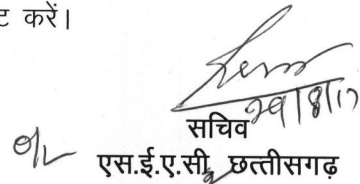 ट करें।
29/8/17
सचिव
एस.ई.ए.सी, छत्तीसगढ़